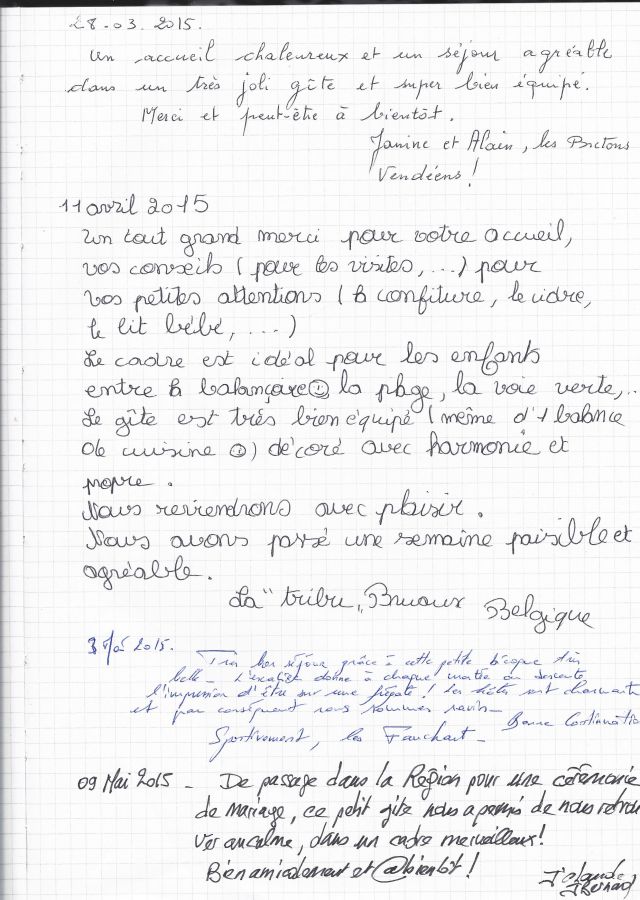 28-03. 2015.
Un accueil chaleureux et un séjour agréable
dans un très joli gîte et super bien équipé.
Merci et peut-être à bientôt.
Janine et Alain, les Bretons
Vendéens !
11 avril 2015
Un tout grand merci pour votre accueil,
vos conseils (pour les visites, ...) pour
vos petites attentions (la confiture, le cidre,
le lit bébé, ...)
Le cadre est idéal pour les enfants
entre la balançoire☺ la plage, la voie verte,..
Le gîte est très bien équipé (même d'1 balance
de cuisine ☺) décoré avec harmonie et
propre.
Nous reviendrons avec plaisir.
Nous avons passé une semaine paisible et
agréable.
La "tribu" Bruaux Belgique
3 Mai 2015.
Très bon séjour grâce à cette petite bicoque très
belle - L'escalier donne à chaque montée ou descente
l'impression d'être sur une frégate ! Les hôtes sont charmants
et par conséquent nous sommes ravis -
Bonne Continuation
Sportivement, les Fauchart -
09 Mai 2015 - De passage dans la Région pour une cérémonie
de mariage, ce petit gite nous a permis de nous retrou
ver au calme, dans un cadre merveilleux!
Bien amicalement et @bientôt !
J. Bernard